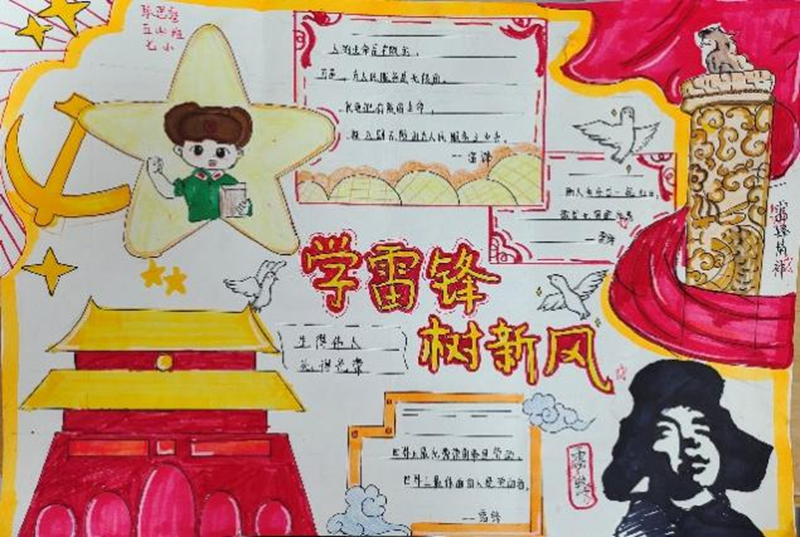 七小
人的生命是有限的，
可是，为人民服务是无限的，
我要把有限的生命，
投入到无限的为人民服务之中去。
——雷锋
——雷锋
雷锋精神
学雷锋
树新风
世界上最光荣的事是劳动，
世界上最体面的人是劳动者。
——雷锋
雷锋